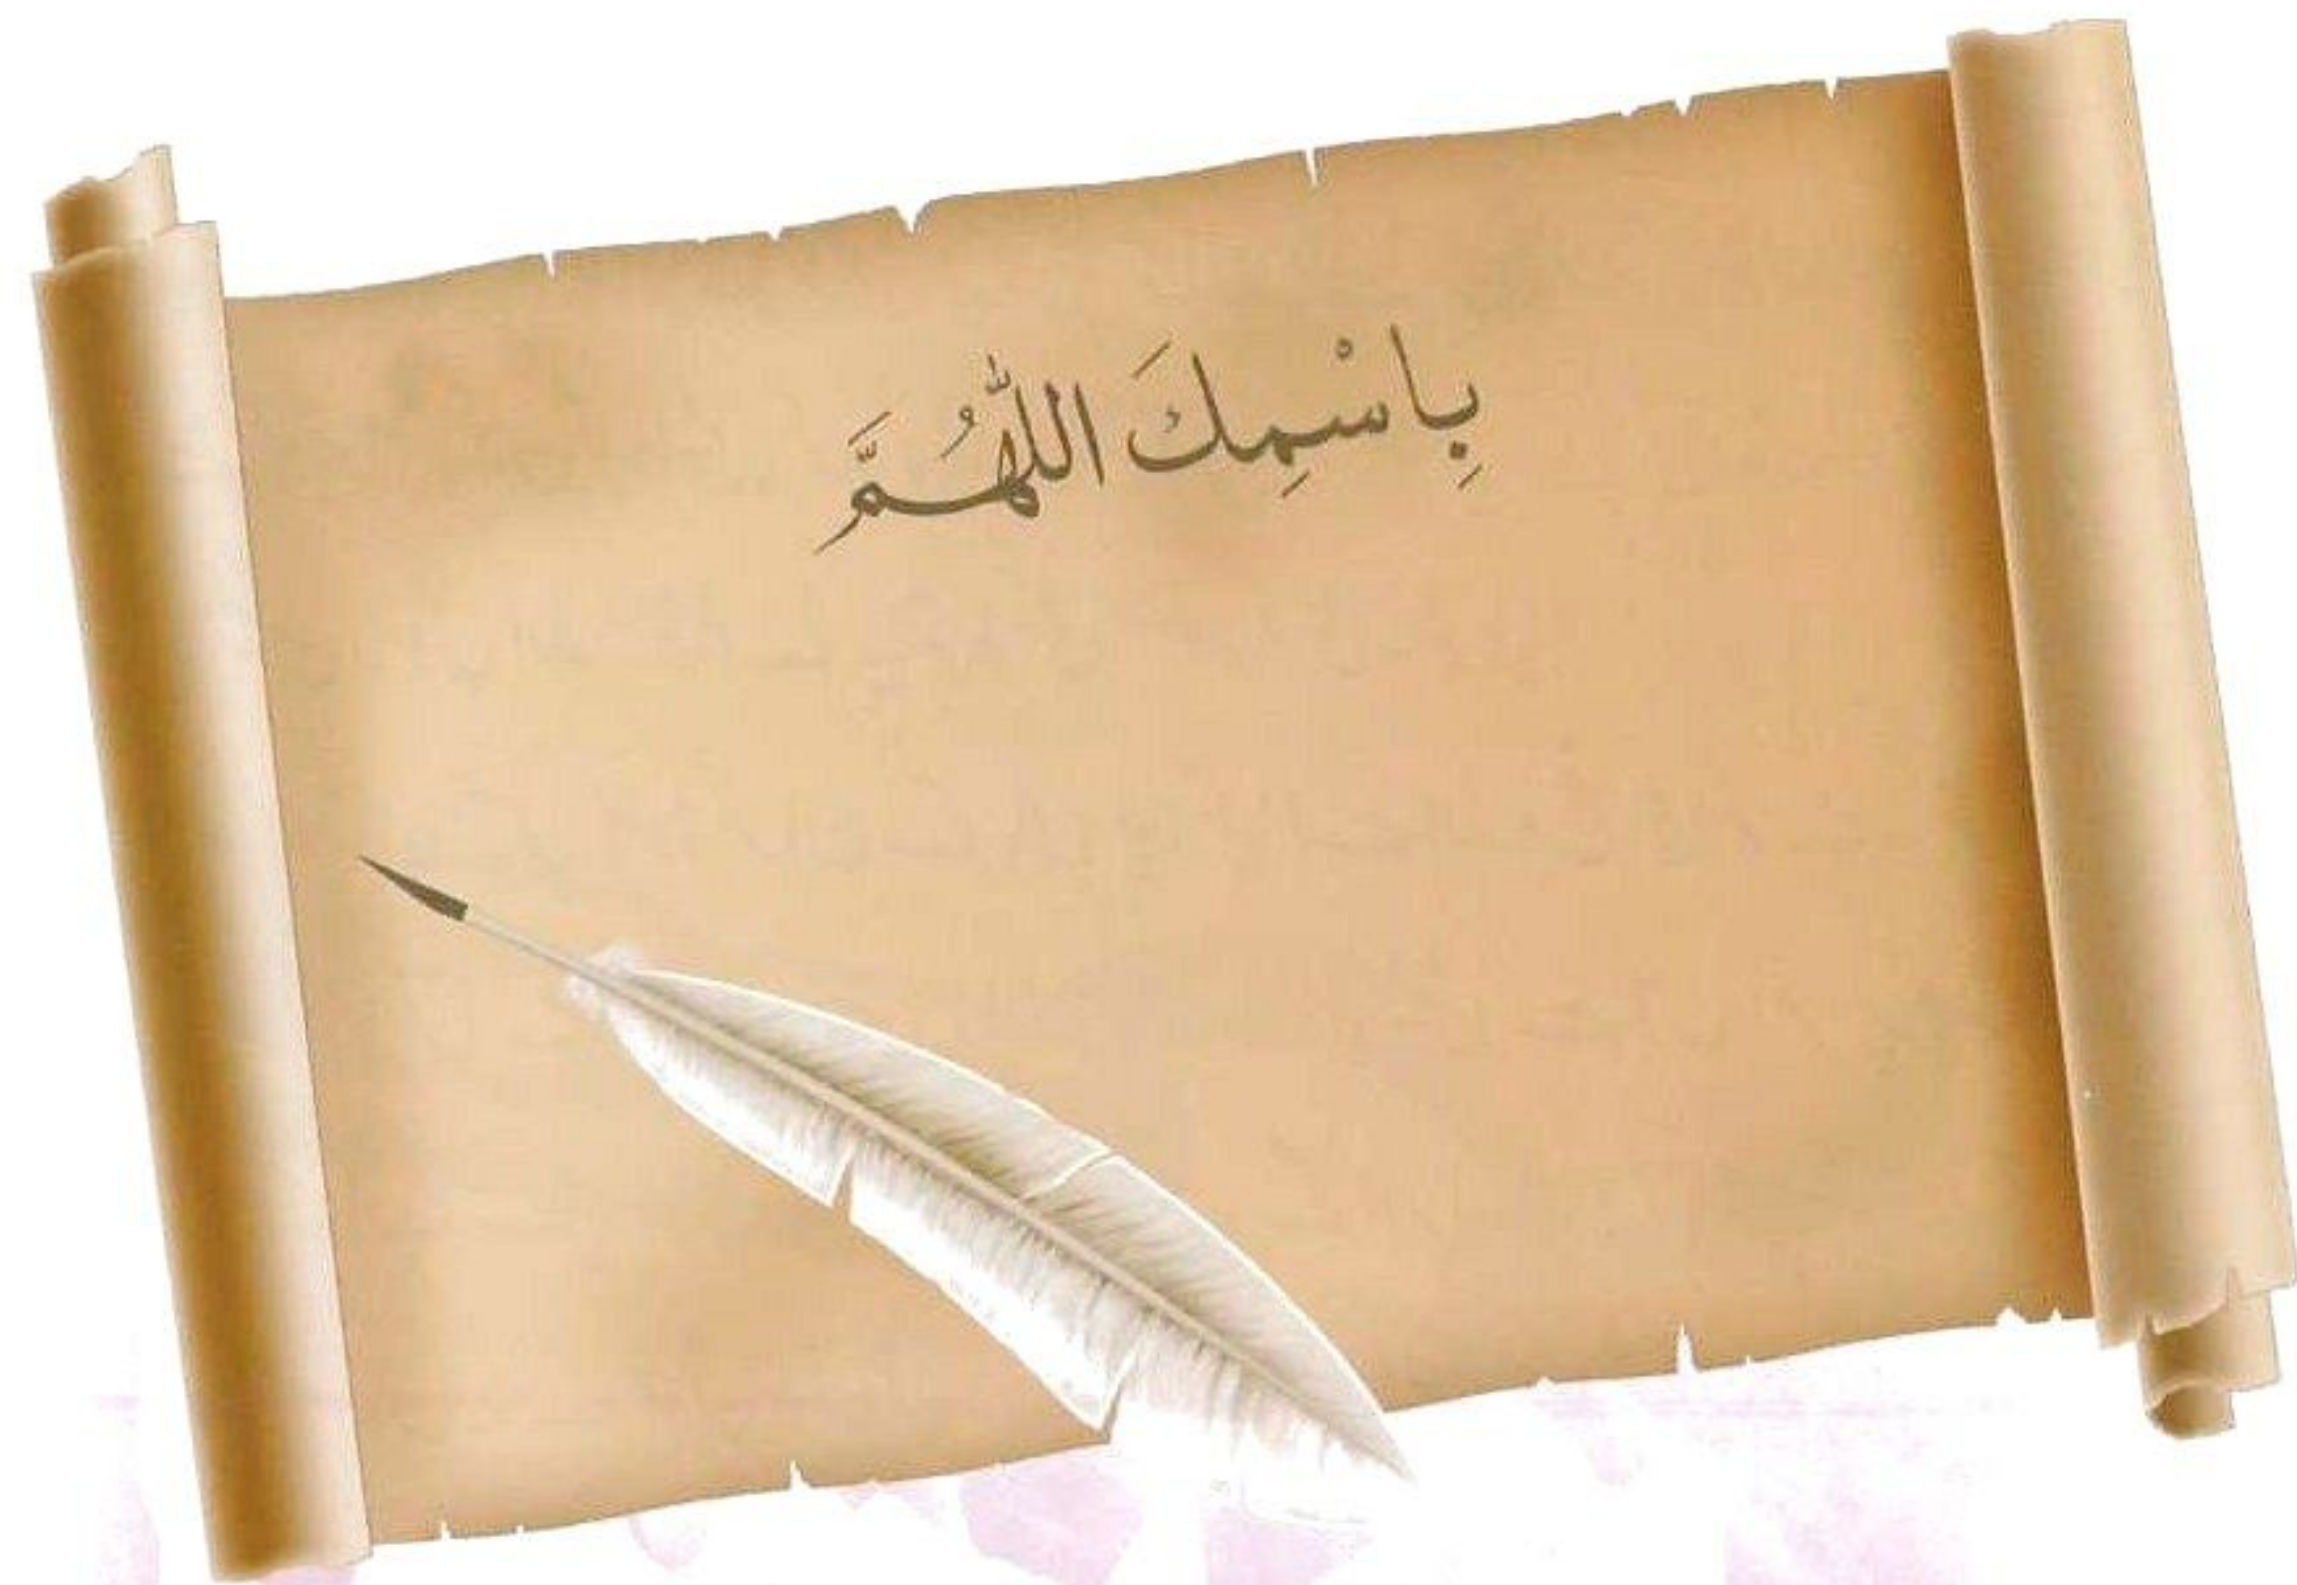 بِاسْمِكَ اللّٰهُمَّ